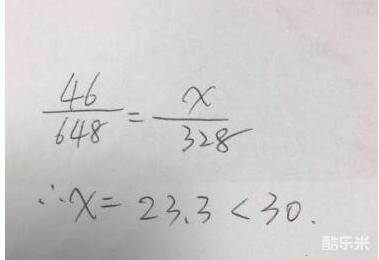 46/648 = x/328
∴ x = 23.3 < 30.
酷乐米